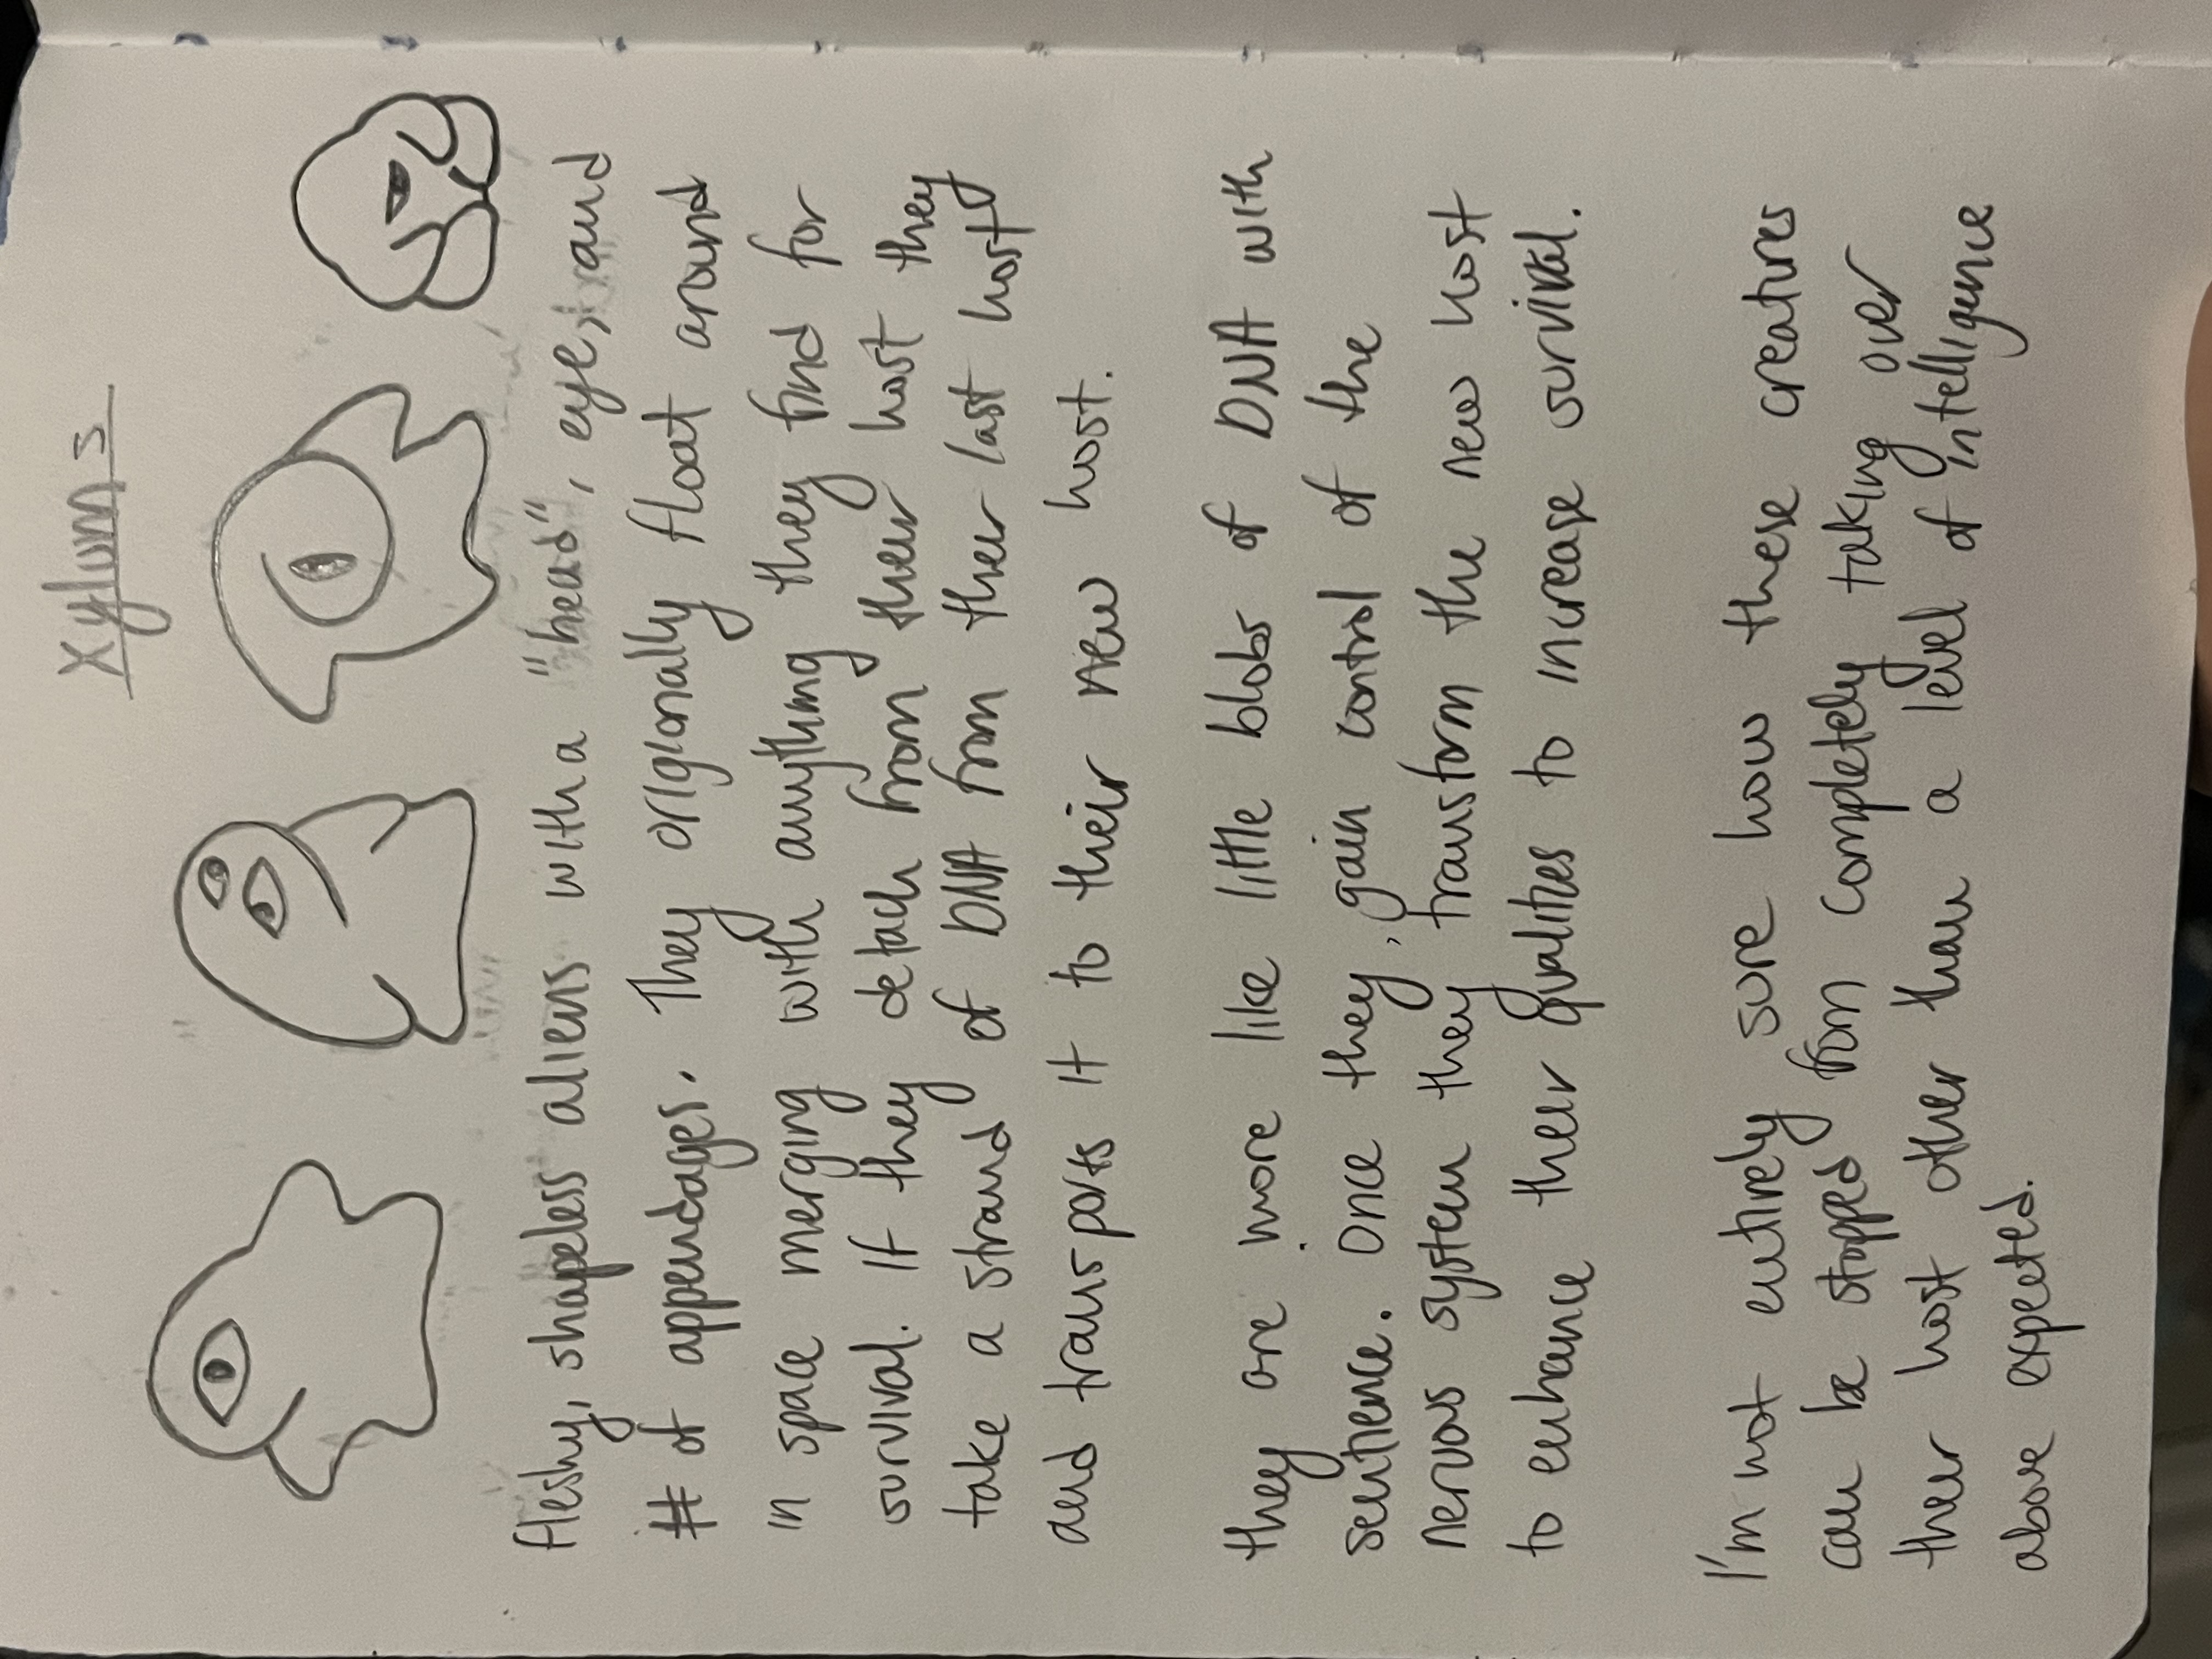 Xylums
fleshy, shapeless aliens with a "head", eye, and
# of appendages. They origionally float around
in space merging with anything they find for
survival. If they detach from their host they
take a strand of DNA from their last host
and transports it to their new host.
they are more like little blobs of DNA with
sentience. Once they gain control of the
nervous system they transform the new host
to enhance their qualities to increase survival.
I'm not entirely sure how these creatures
can be stopped from completely taking over
their host other than a level of intelligence
above expected.